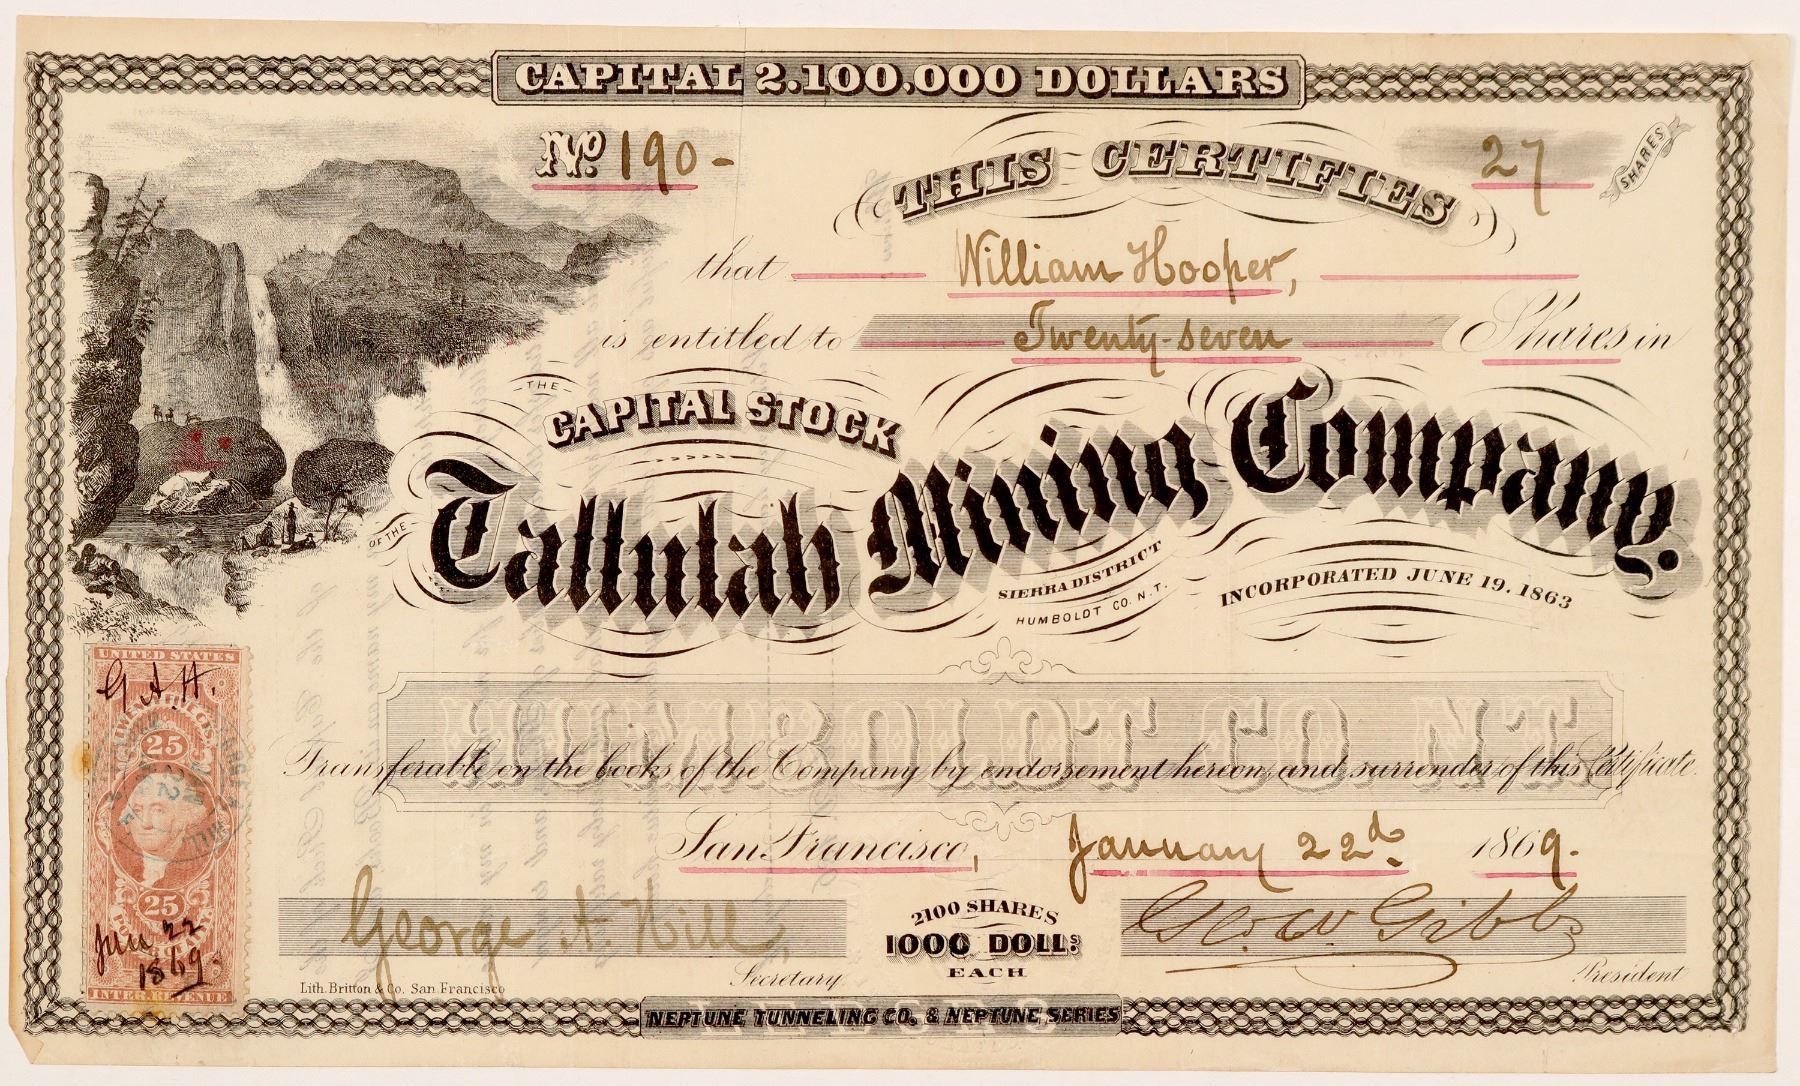 CAPITAL 2.100.000 DOLLARS
No. 190-
THIS CERTIFIES
27 SHARES
that William Hooper,
is entitled to Twenty-seven Shares in
THE
CAPITAL STOCK
OF THE
Tallulah Mining Company.
SIERRA DISTRICT
HUMBOLDT CO. N.T.
INCORPORATED JUNE 19. 1863
HUMBOLDT CO NT
Transferable on the books of the Company by endorsement hereon, and surrender of this Certificate.
San Francisco, January 22d. 1869.
George A. Hill
Secretary
2100 SHARES
1000 DOLLS
EACH
Geo. W Gibbs
President
Lith. Britton & Co. San Francisco
NEPTUNE TUNNELING CO. & NEPTUNE SERIES
UNITED STATES
G. A. H.
25
JAN
22
25
Jan 22
1869.
INTER. REVENUE